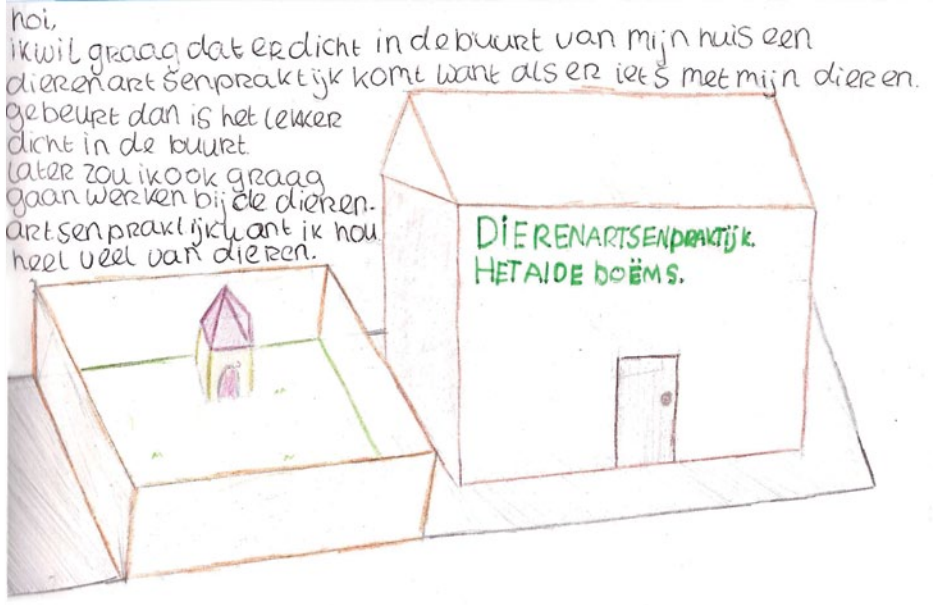 hoi,
ik wil graag dat er dicht in de buurt van mijn huis een
dierenartsenpraktijk komt want als er iets met mijn dieren.
gebeurt dan is het lekker
dicht in de buurt.
later zou ik ook graag
gaan werken bij de dieren-
artsenpraktijk want ik hou
heel veel van dieren.
DIERENARTSENPRAKTIJK.
HET AIDE BOËMS.